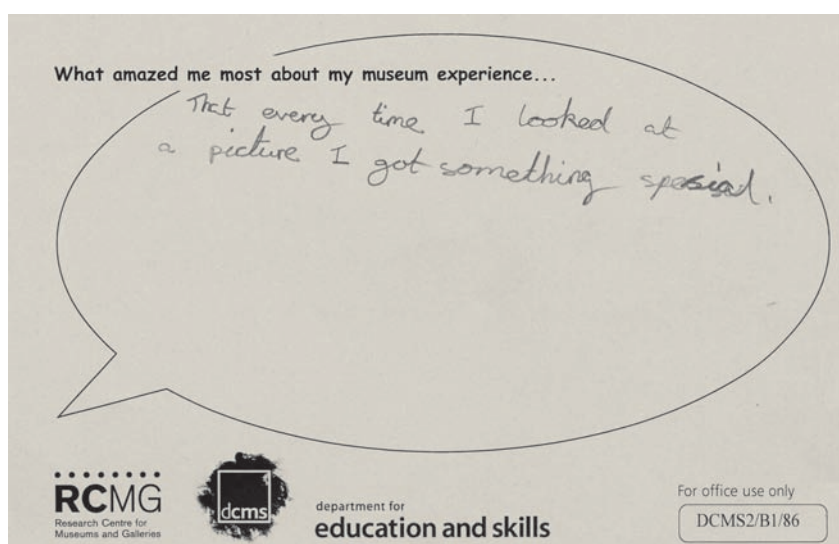 What amazed me most about my museum experience...
That every time I looked at
a picture I got something spesial.
RCMG
Research Centre for
Museums and Galleries
dcms
department for
education and skills
For office use only
DCMS2/B1/86